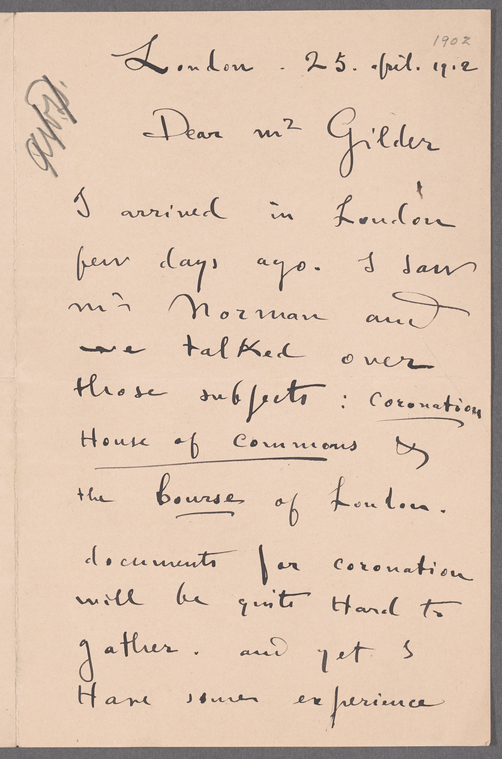 1902
London . 25. April. 1902
Dear Mr Gilder
I arrived in London
few days ago. I saw
Mrs Norman and
we talked over
those subjects : coronation
House of Commons &
the bourse of London.
documents for coronation
will be quite Hard to
gather . and yet I
Have some experience